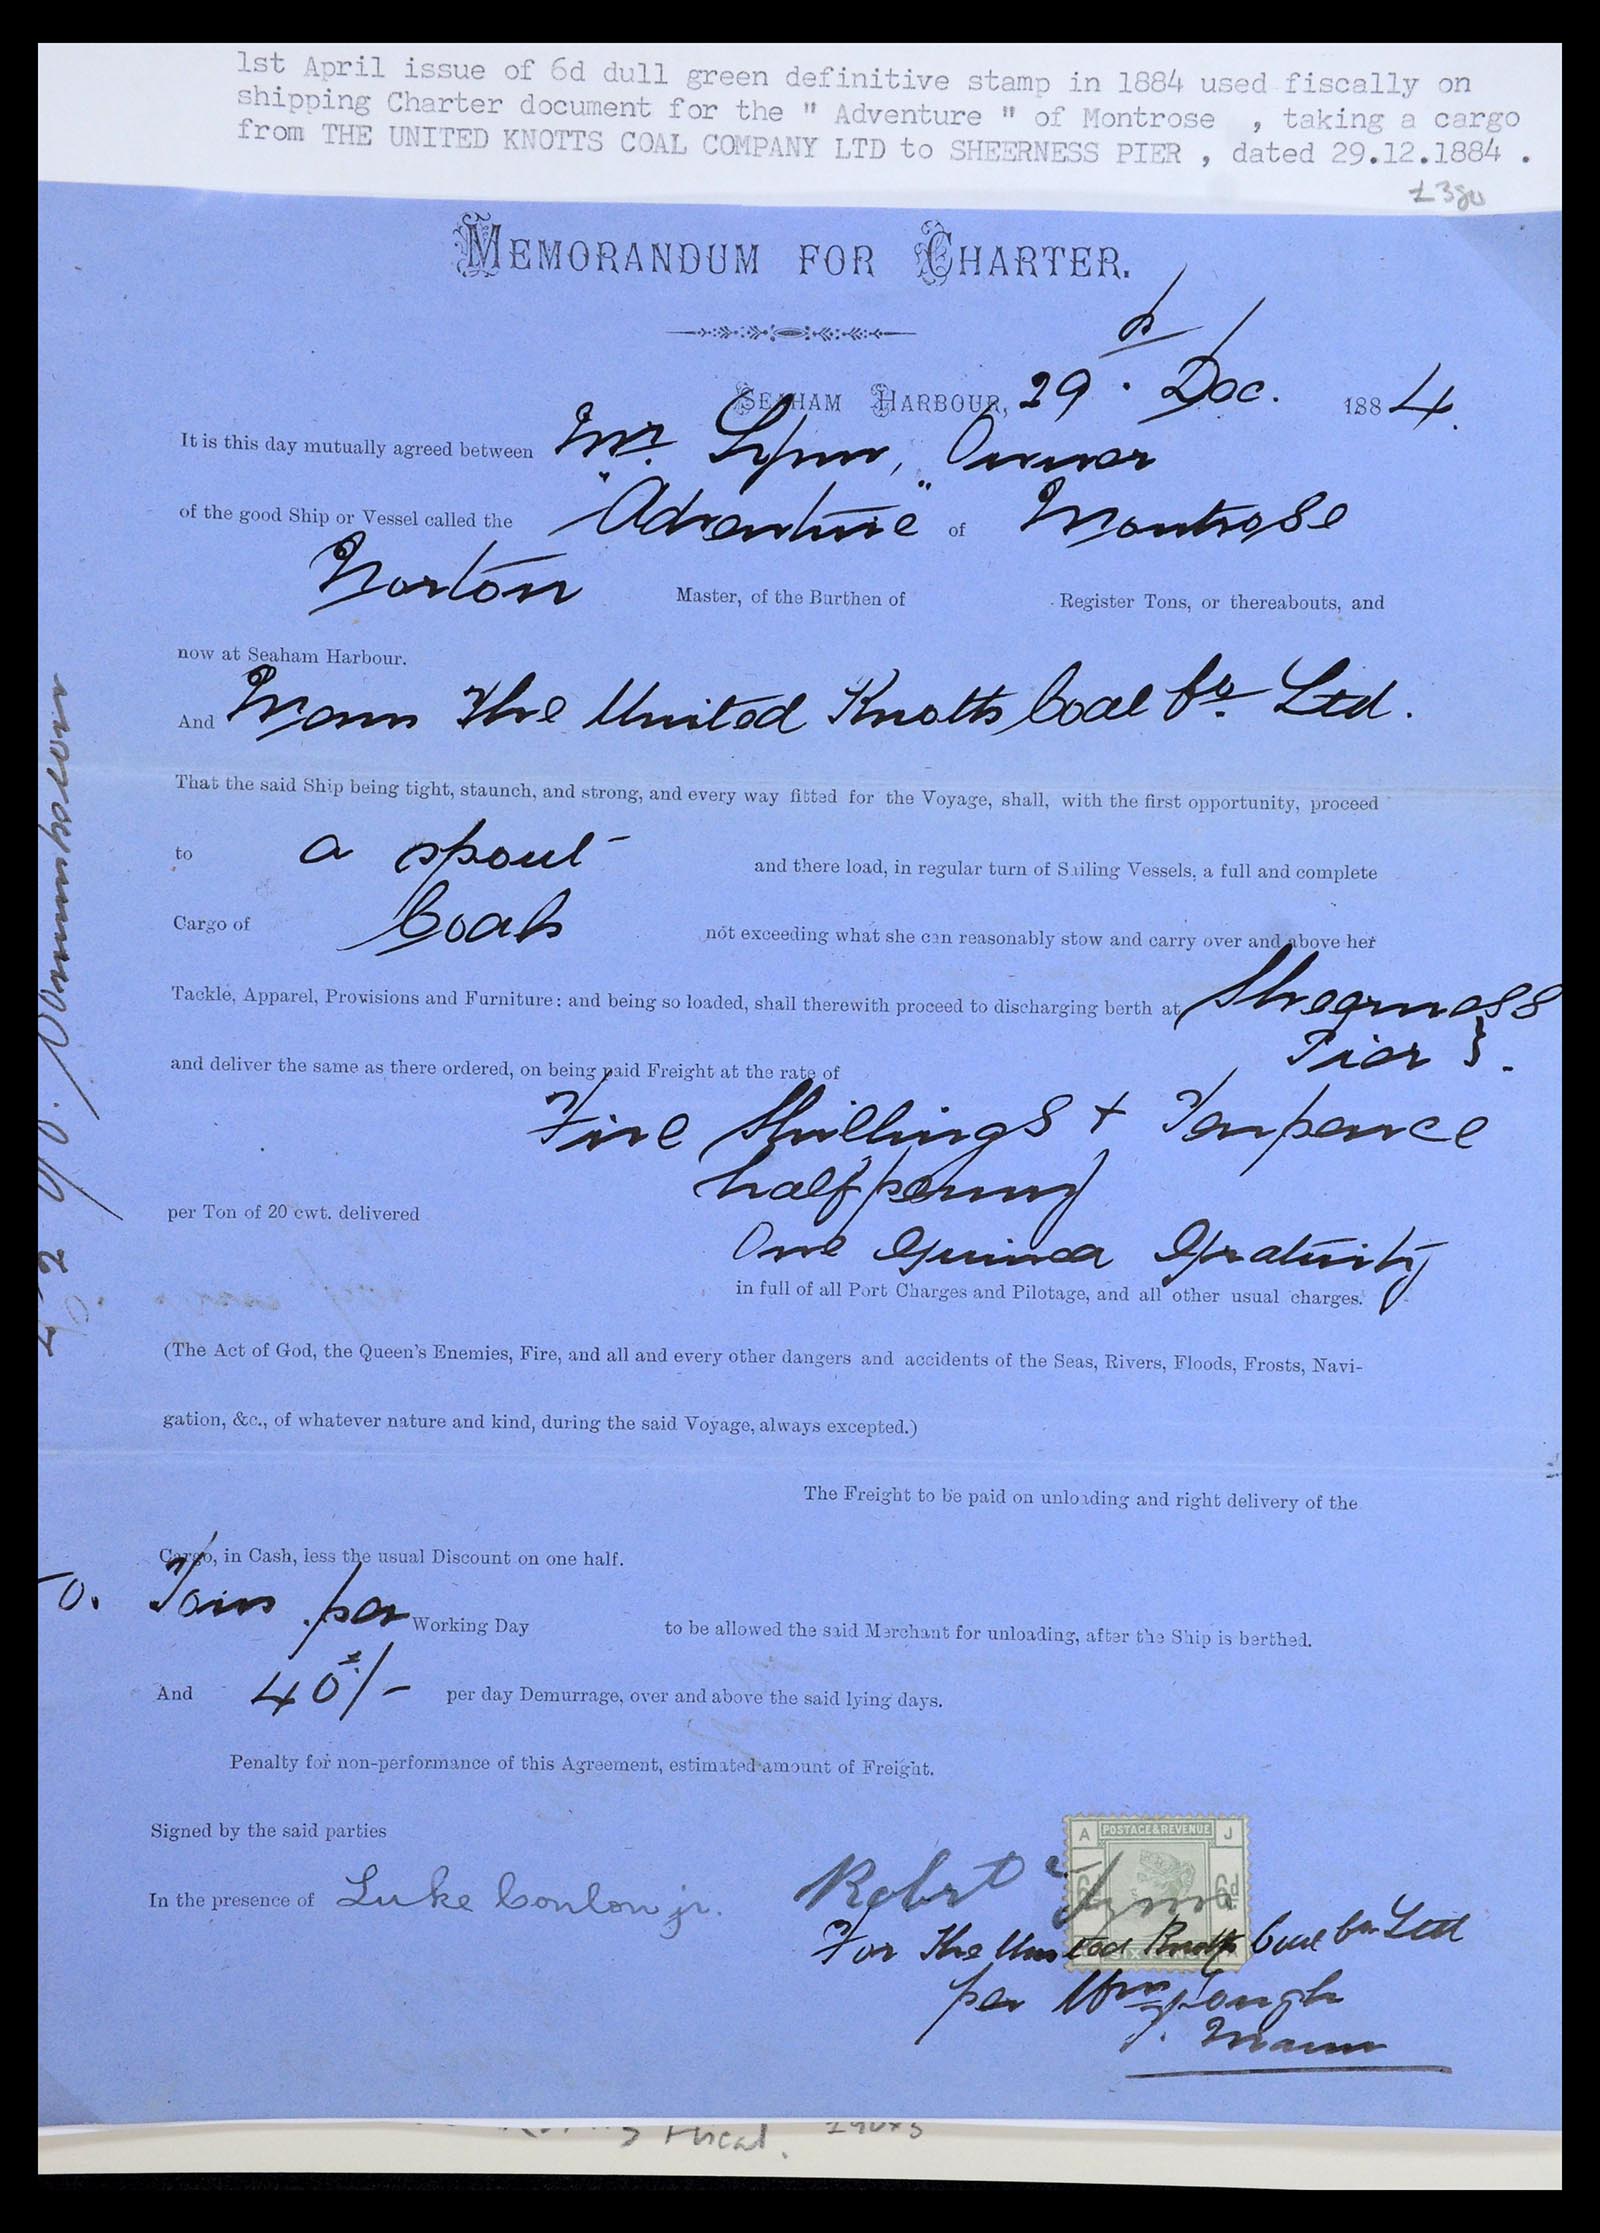 1st April issue of 6d dull green definitive stamp in 1884 used fiscally on
shipping Charter document for the " Adventure " of Montrose , taking a cargo
from THE UNITED KNOTTS COAL COMPANY LTD to SHEERNESS PIER , dated 29.12.1884 .
£380
MEMORANDUM FOR CHARTER.
SEAHAM HARBOUR, 29 Dec. 1884.
It is this day mutually agreed between Mr. Lynn, Owner
of the good Ship or Vessel called the "Adventure" of Montrose
Norton Master, of the Burthen of Register Tons, or thereabouts, and
now at Seaham Harbour.
And Mann The United Knotts Coal Co. Ltd.
That the said Ship being tight, staunch, and strong, and every way fitted for the Voyage, shall, with the first opportunity, proceed
to a spout and there load, in regular turn of Sailing Vessels, a full and complete
Cargo of Coals not exceeding what she can reasonably stow and carry over and above her
Tackle, Apparel, Provisions and Furniture: and being so loaded, shall therewith proceed to discharging berth at Sheerness
Pier }.
and deliver the same as there ordered, on being paid Freight at the rate of
Five Shillings + Tenpence
halfpenny
per Ton of 20 cwt. delivered
One Guinea Gratuity
in full of all Port Charges and Pilotage, and all other usual charges.
(The Act of God, the Queen's Enemies, Fire, and all and every other dangers and accidents of the Seas, Rivers, Floods, Frosts, Navi-
gation, &c., of whatever nature and kind, during the said Voyage, always excepted.)
The Freight to be paid on unloading and right delivery of the
Cargo, in Cash, less the usual Discount on one half.
Tons per Working Day to be allowed the said Merchant for unloading, after the Ship is berthed.
And 40/- per day Demurrage, over and above the said lying days.
Penalty for non-performance of this Agreement, estimated amount of Freight.
Signed by the said parties
A POSTAGE & REVENUE J
6d
In the presence of Luke Conlon jr. Robert Lynn
For The United Knotts Coal Co. Ltd
per Wm Gough
Mann